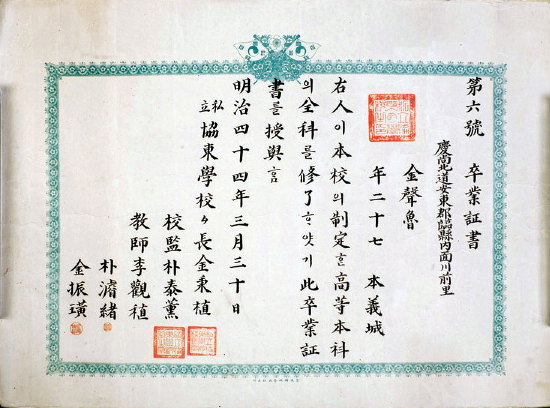 第六號 卒業証書
慶尚北道安東郡臨縣內面川前里
金聲魯
年二十七 本義城
右人이本校의制定ᄒᆞᆫ高等本科
의全科를修了ᄒᆞ얏기此卒業証
書를授與홈
明治四十四年三月三十日
私立協東學校々長金秉植
校監朴泰薰
教師李觀稙
朴濬緖
金振璜